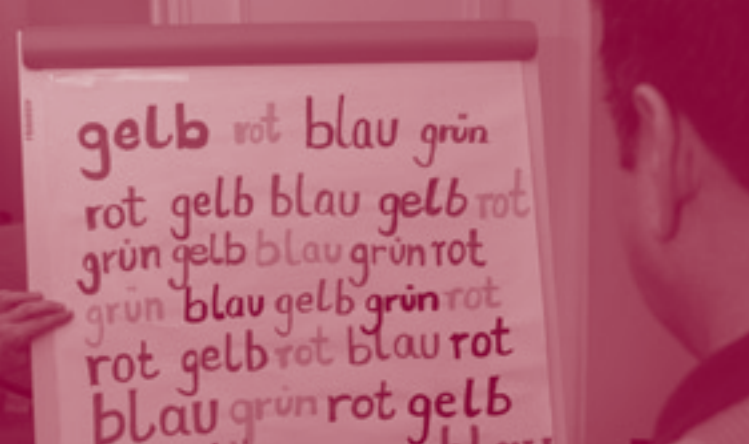 gelb rot blau grün
rot gelb blau gelb rot
grün gelb blau grün rot
grün blau gelb grün rot
rot gelb rot blau rot
blau grün rot gelb